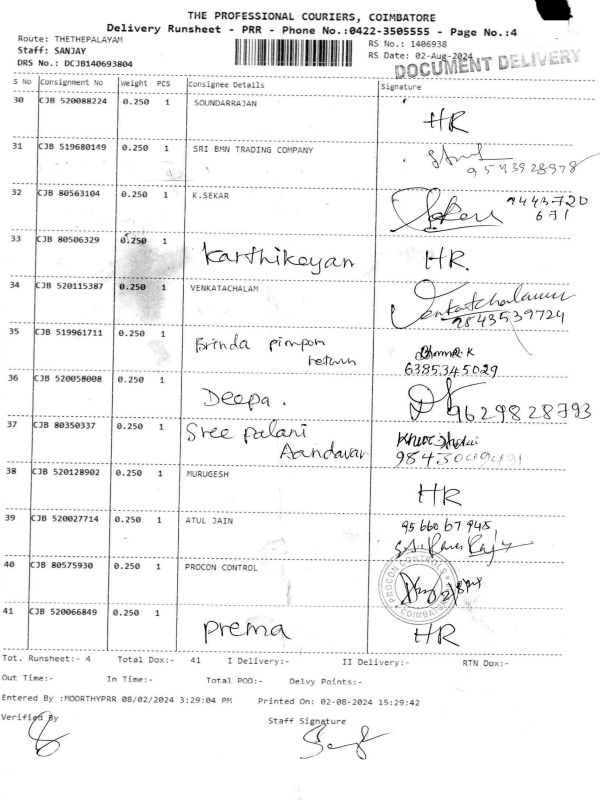 THE PROFESSIONAL COURIERS, COIMBATORE
Delivery Runsheet - PRR - Phone No.:0422-3505555 - Page No.:4
Route: THETHEPALAYAM
RS No.: 1406938
Staff: SANJAY
RS Date: 02-Aug-2024
DRS No.: DCJB140693804
DOCUMENT DELIVERY
S No Consignment No Weight PCS Consignee Details Signature
30 CJB 520088224 0.250 1 SOUNDARRAJAN HR
31 CJB 519680149 0.250 1 SRI BMN TRADING COMPANY
9543928978
32 CJB 80563104 0.250 1 K.SEKAR 9443720
671
33 CJB 80506329 0.250 1 Karthikeyan HR.
34 CJB 520115387 0.250 1 VENKATACHALAM Venkatchalam
9843539724
35 CJB 519961711 0.250 1 Brinda pimpom
return
6385345029
36 CJB 520058008 0.250 1 Deepa. 9629828793
37 CJB 80350337 0.250 1 Sree palani
Aandavar
38 CJB 520128902 0.250 1 MURUGESH HR
39 CJB 520027714 0.250 1 ATUL JAIN 9566067945
40 CJB 80575930 0.250 1 PROCON CONTROL
PROCON CONTROLS
COIMBATORE
41 CJB 520066849 0.250 1 Prema HR
Tot. Runsheet:- 4 Total Dox:- 41 I Delivery:- II Delivery:- RTN Dox:-
Out Time:- In Time:- Total POD:- Delvy Points:-
Entered By :MOORTHYPRR 08/02/2024 3:29:04 PM Printed On: 02-08-2024 15:29:42
Verified By Staff Signature